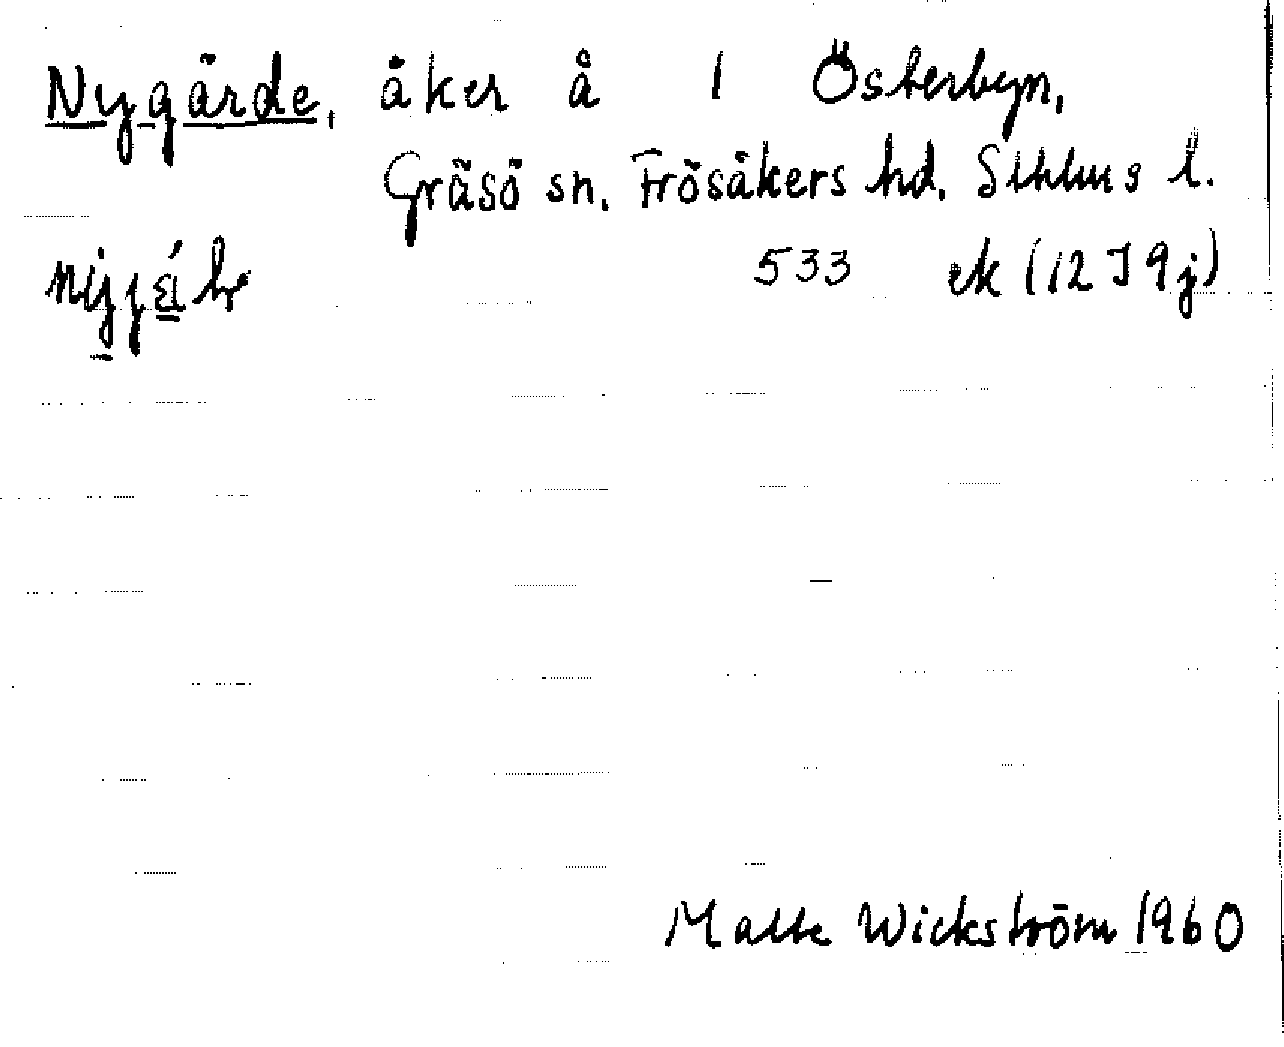 Nygärde, åker å 1 Österbyn,
Gräsö sn. Frösåkers hd. Sthlms l.
533 ek (12I9j)
Malte Wickström 1960